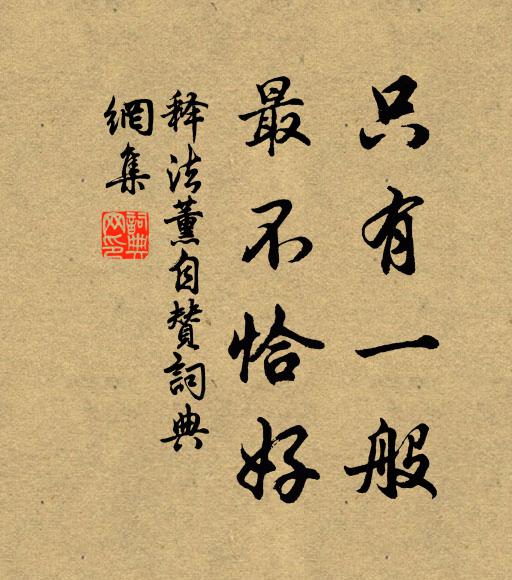 只有一般
最不恰好
释法薰自赞詞典
網集
詞典網印